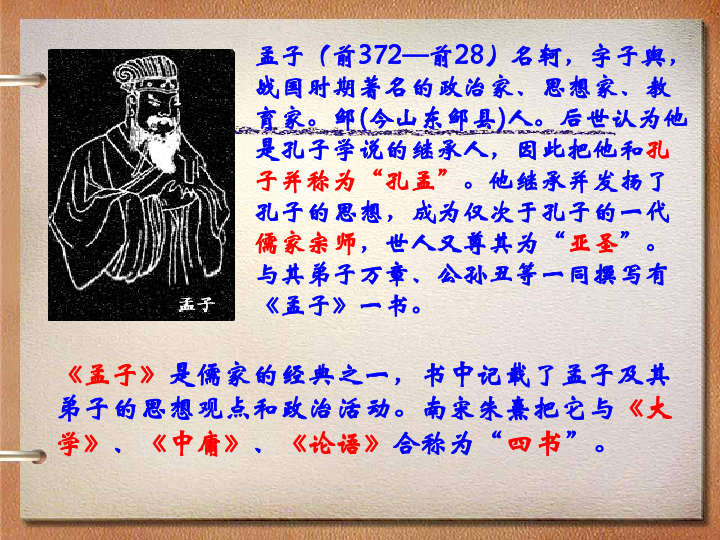 孟子（前372—前28）名轲，字子舆，
战国时期著名的政治家、思想家、教
育家。邹(今山东邹县)人。后世认为他
是孔子学说的继承人，因此把他和孔
子并称为“孔孟”。他继承并发扬了
孔子的思想，成为仅次于孔子的一代
儒家宗师，世人又尊其为“亚圣”。
与其弟子万章、公孙丑等一同撰写有
《孟子》一书。
孟子
《孟子》是儒家的经典之一，书中记载了孟子及其
弟子的思想观点和政治活动。南宋朱熹把它与《大
学》、《中庸》、《论语》合称为“四书”。